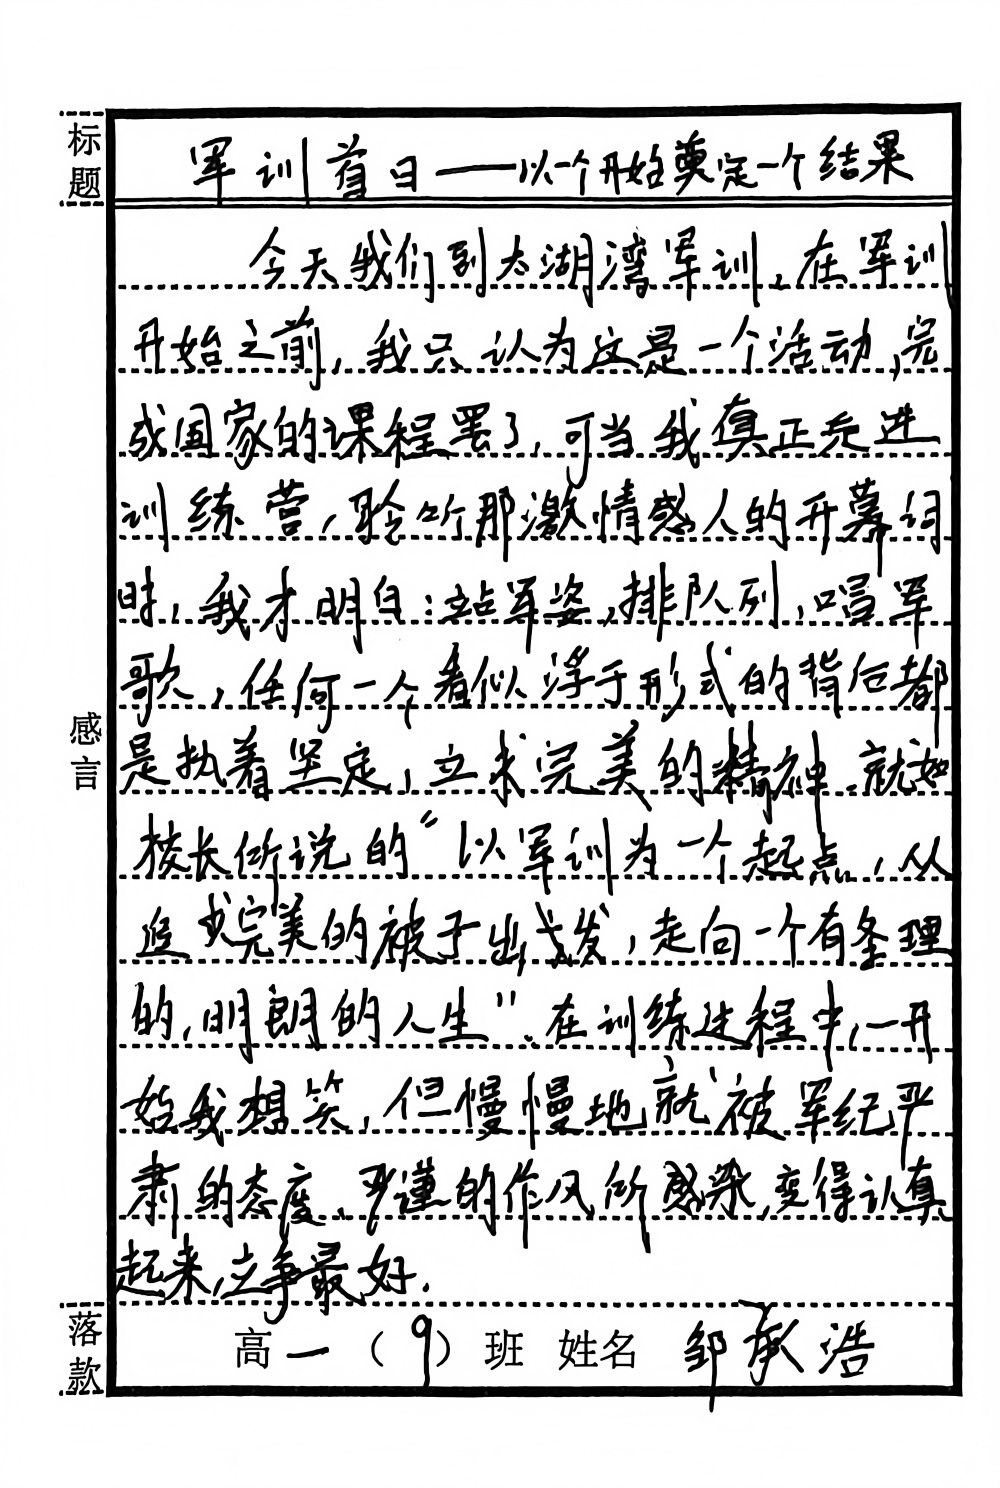 标题
军训首日——以一个开始奠定一个结果
今天我们到太湖湾军训,在军训
开始之前,我只认为这是一个活动,完
成国家的课程罢了,可当我真正走进
训练营,聆听那激情感人的开幕词
时,我才明白:站军姿,排队列,喧军
歌,任何一个看似浮于形式的背后都
是执着坚定,立求完美的精神.就如
校长所说的“以军训为一个起点,从
追求完美的被子出发,走向一个有条理
的,明朗的人生”.在训练过程中,一开
始我想笑,但慢慢地就被军纪严
肃的态度,严谨的作风所感染,变得认真
起来,立争最好.
感言
落款
高一(9)班 姓名 邹承浩